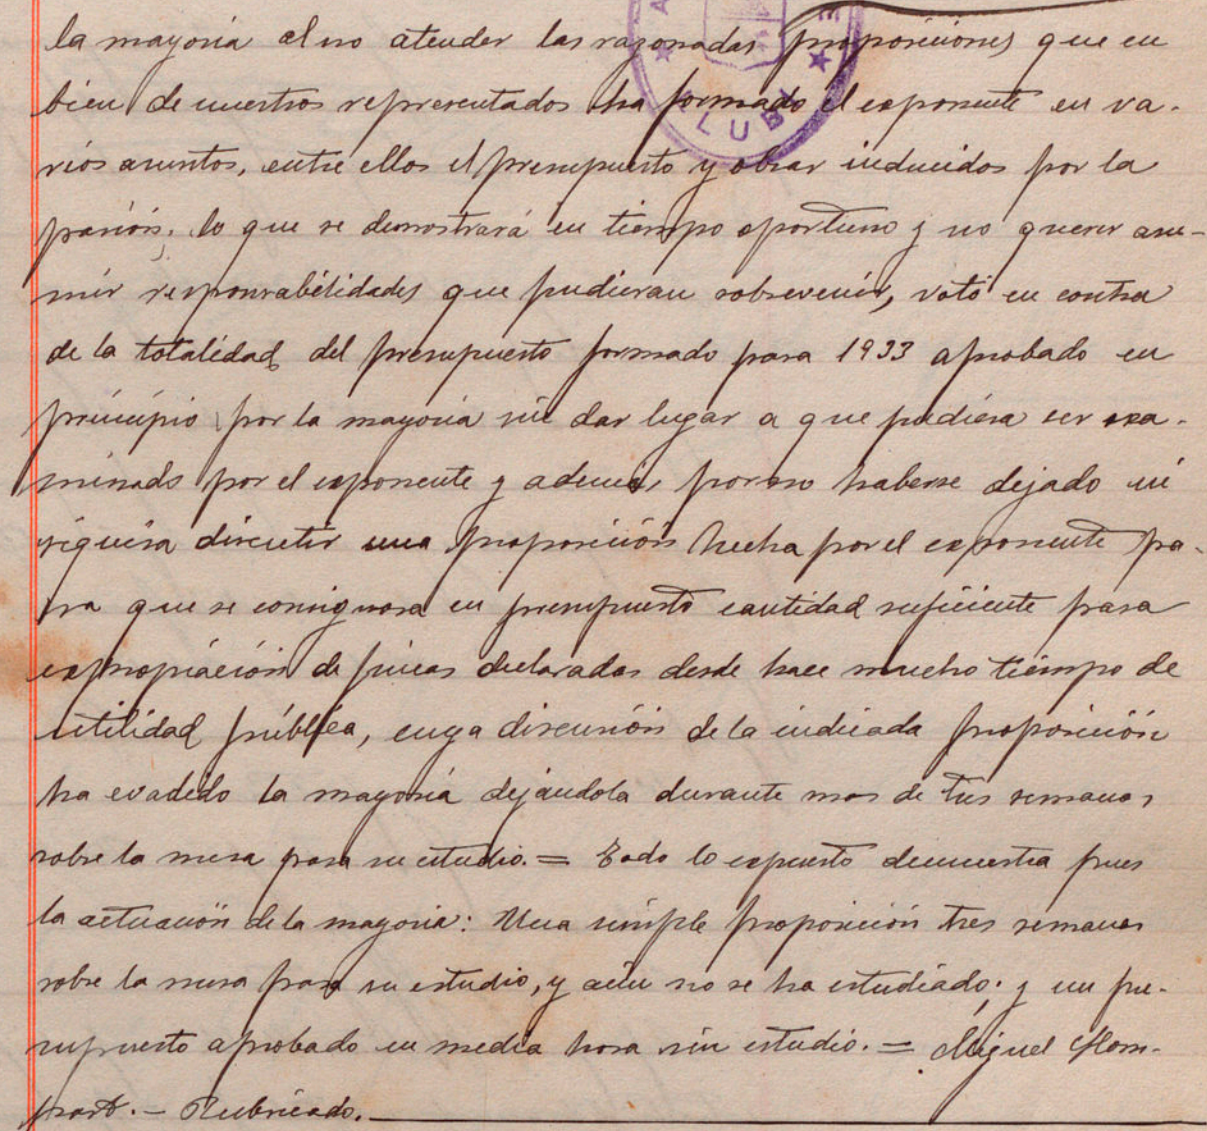 la mayoria al no atender las razonadas proposiciones que en
bien de nuestros representados ha formado el exponente en va-
rios asuntos, entre ellos el presupuesto y obrar inducidos por la
pasión, lo que se demostrará en tiempo oportuno y no querer asu-
mir responsabilidades que pudieran sobrevenir, votó en contra
de la totalidad del presupuesto formado para 1933 aprobado en
principio por la mayoria sin dar lugar a que pudiera ser exa-
minado por el exponente y ademas, por no haberse dejado ni
siquiera discutir una proposición hecha por el exponente pa-
ra que se consignara en presupuesto cantidad suficiente para
expropiación de fincas declaradas desde hace mucho tiempo de
utilidad pública, cuya discusión de la indicada proposición
ha evadido la mayoria dejándola durante mas de tres semanas
sobre la mesa para su estudio. = Todo lo expuesto demuestra pues
la actuación de la mayoria: Una simple proposición tres semanas
sobre la mesa para su estudio, y aún no se ha estudiado; y un pre-
supuesto aprobado en media hora sin estudio. = Miguel Mom-
part. - Rubricado.